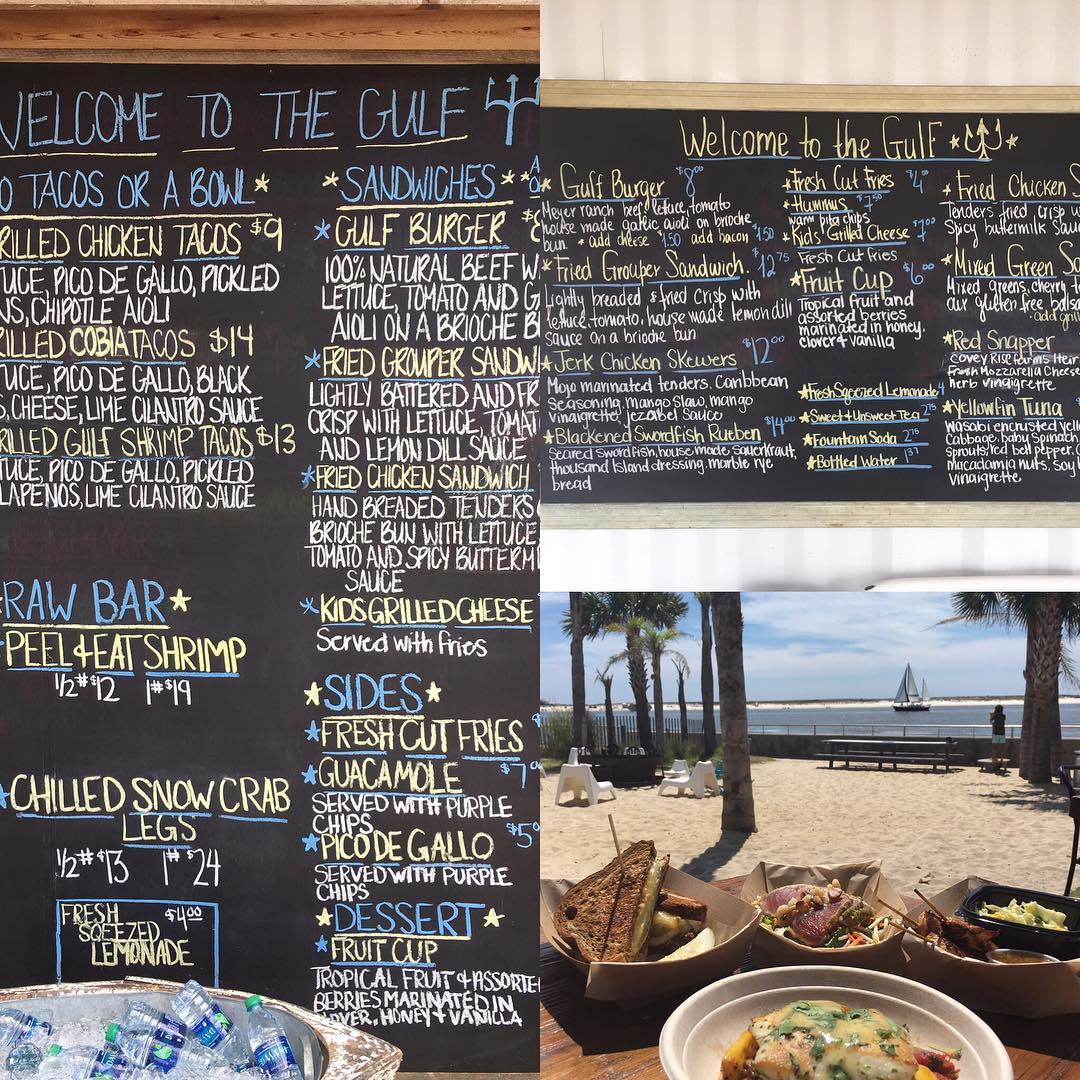 WELCOME TO THE GULF
TACOS OR A BOWL
GRILLED CHICKEN TACOS $9
LETTUCE, PICO DE GALLO, PICKLED
CHIPOTLE AIOLI
GRILLED COBIA TACOS $14
LETTUCE, PICO DE GALLO, BLACK
CHEESE, LIME CILANTRO SAUCE
GRILLED GULF SHRIMP TACOS $13
LETTUCE, PICO DE GALLO, PICKLED
JALAPENOS, LIME CILANTRO SAUCE
RAW BAR
PEEL & EAT SHRIMP
1/2# $12 1# $19
CHILLED SNOW CRAB
LEGS
1/2# $13 1# $24
FRESH $4.00
SQEEZED
LEMONADE
SANDWICHES
GULF BURGER
100% NATURAL BEEF W
LETTUCE, TOMATO AND G
AIOLI ON A BRIOCHE B
FRIED GROUPER SANDW
LIGHTLY BATTERED AND FR
CRISP WITH LETTUCE, TOMAT
AND LEMON DILL SAUCE
FRIED CHICKEN SANDWICH
HAND BREADED TENDERS
BRIOCHE BUN WITH LETTUCE
TOMATO AND SPICY BUTTERM
SAUCE
KIDS GRILLED CHEESE
Served with fries
SIDES
FRESH CUT FRIES
GUACAMOLE $7
SERVED WITH PURPLE
CHIPS
PICO DE GALLO $5
SERVED WITH PURPLE
CHIPS
DESSERT
FRUIT CUP
TROPICAL FRUIT & ASSORTE
BERRIES MARINATED IN
CLOVER, HONEY + VANILLA
Welcome to the Gulf
Gulf Burger $8.00
Meyer ranch beef, lettuce, tomato
house made garlic aioli on brioche
bun. * add cheese $1.50 add bacon $1.50
Fried Grouper Sandwich $12.75
Lightly breaded & fried crisp with
lettuce, tomato, house made lemon dill
sauce on a brioche bun
Jerk Chicken Skewers $12.00
Mojo marinated tenders. Caribbean
Seasoning, mango slaw, mango
vinaigrette, jezabel sauce
Blackened Swordfish Rueben $14.00
Seared swordfish, house made sauerkraut,
thousand Island dressing, marble rye
bread
Fresh Cut Fries $4
Hummus $7.50
warm pita chips
Kid's Grilled Cheese $7.00
Fresh Cut Fries
Fruit Cup $6.00
Tropical fruit and
assorted berries
marinated in honey,
clover & vanilla
Fresh Sqeezed Lemonade 4
Sweet & Unsweet Tea 2.75
Fountain Soda 2.75
Bottled Water 1.37
Fried Chicken S
Tenders fried crisp w
Spicy buttermilk sauc
Mixed Green Sa
Mixed greens, cherry t
our gluten free balsa
add gril
Red Snapper
Covey Rise Farms Heir
Fresh Mozzarella Cheese
herb vinaigrette
Yellowfin Tuna
Wasabi encrusted yell
Cabbage, baby Spinach
Sprouts, red bell pepper, C
Macadamia nuts, Soy
Vinaigrette